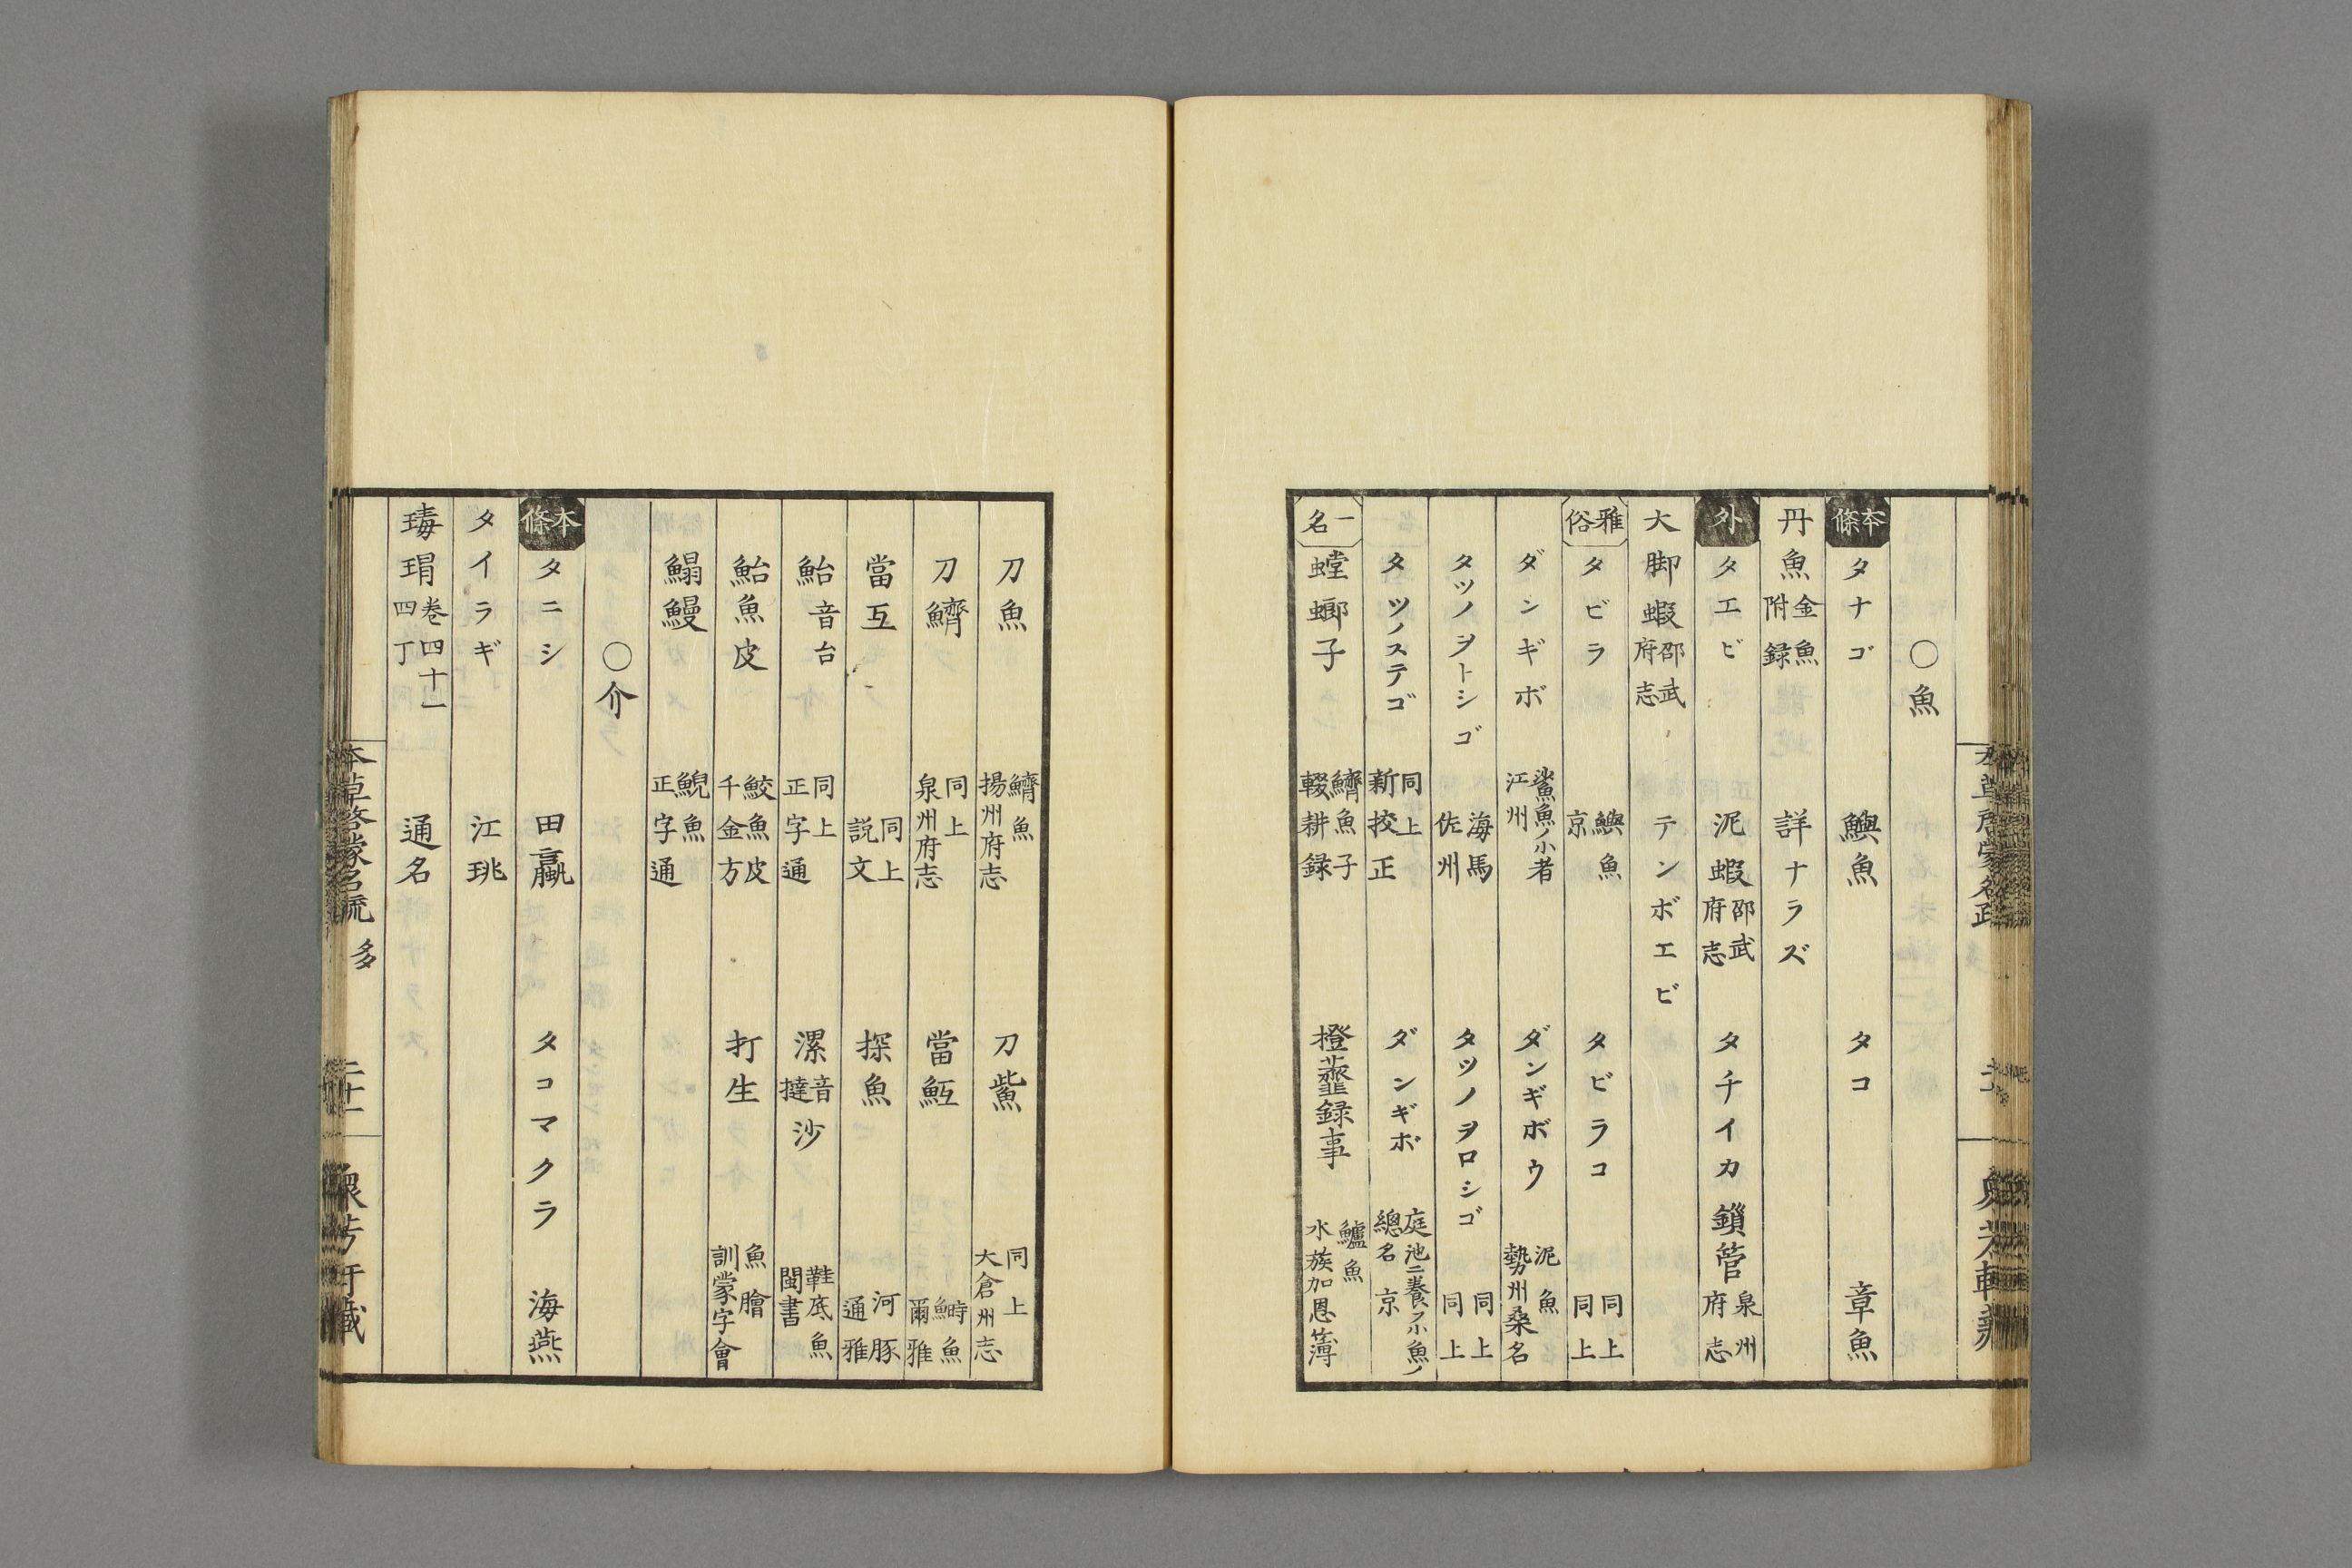 ○魚
本條 タナゴ 鱮魚 タコ 章魚
丹魚 金魚附録 詳ナラズ
外 タエビ 泥蝦 邵武府志 タチイカ 鎖管 泉州府志
大脚蝦 邵武府志 テンボエビ
雅俗 タビラ 鱮魚 京 タビラコ 同上 同上
ダンギボ 鯊魚ノ小者 江州 ダンギボウ 泥魚 勢州桑名
タツノヲトシゴ 海馬 佐州 タツノヲロシゴ 同上 同上
タツノステゴ 同上 新挍正 ダンギボ 庭池ニ養フ小魚ノ總名 京
一名 螳螂子 鱭魚子 輟耕録 橙虀録事 鱸魚 水族加恩簿
刀魚 鱭魚 揚州府志 刀鮆 同上 大倉州志
刀鱭 同上 泉州府志 當魱 鰣魚 爾雅
當互 同上 説文 探魚 河豚 通雅
鮐 音台 同上 正字通 漯 音撻 沙 鞋底魚 閩書
鮐魚皮 鮫魚皮 千金方 打生 魚膾 訓蒙字會
鰨鰻 鯢魚 正字通
○介
本條 タニシ 田蠃 タコマクラ 海燕
タイラギ 江珧
瑇瑁 卷四十一 四丁 通名
本草啓蒙名疏 多 二十一